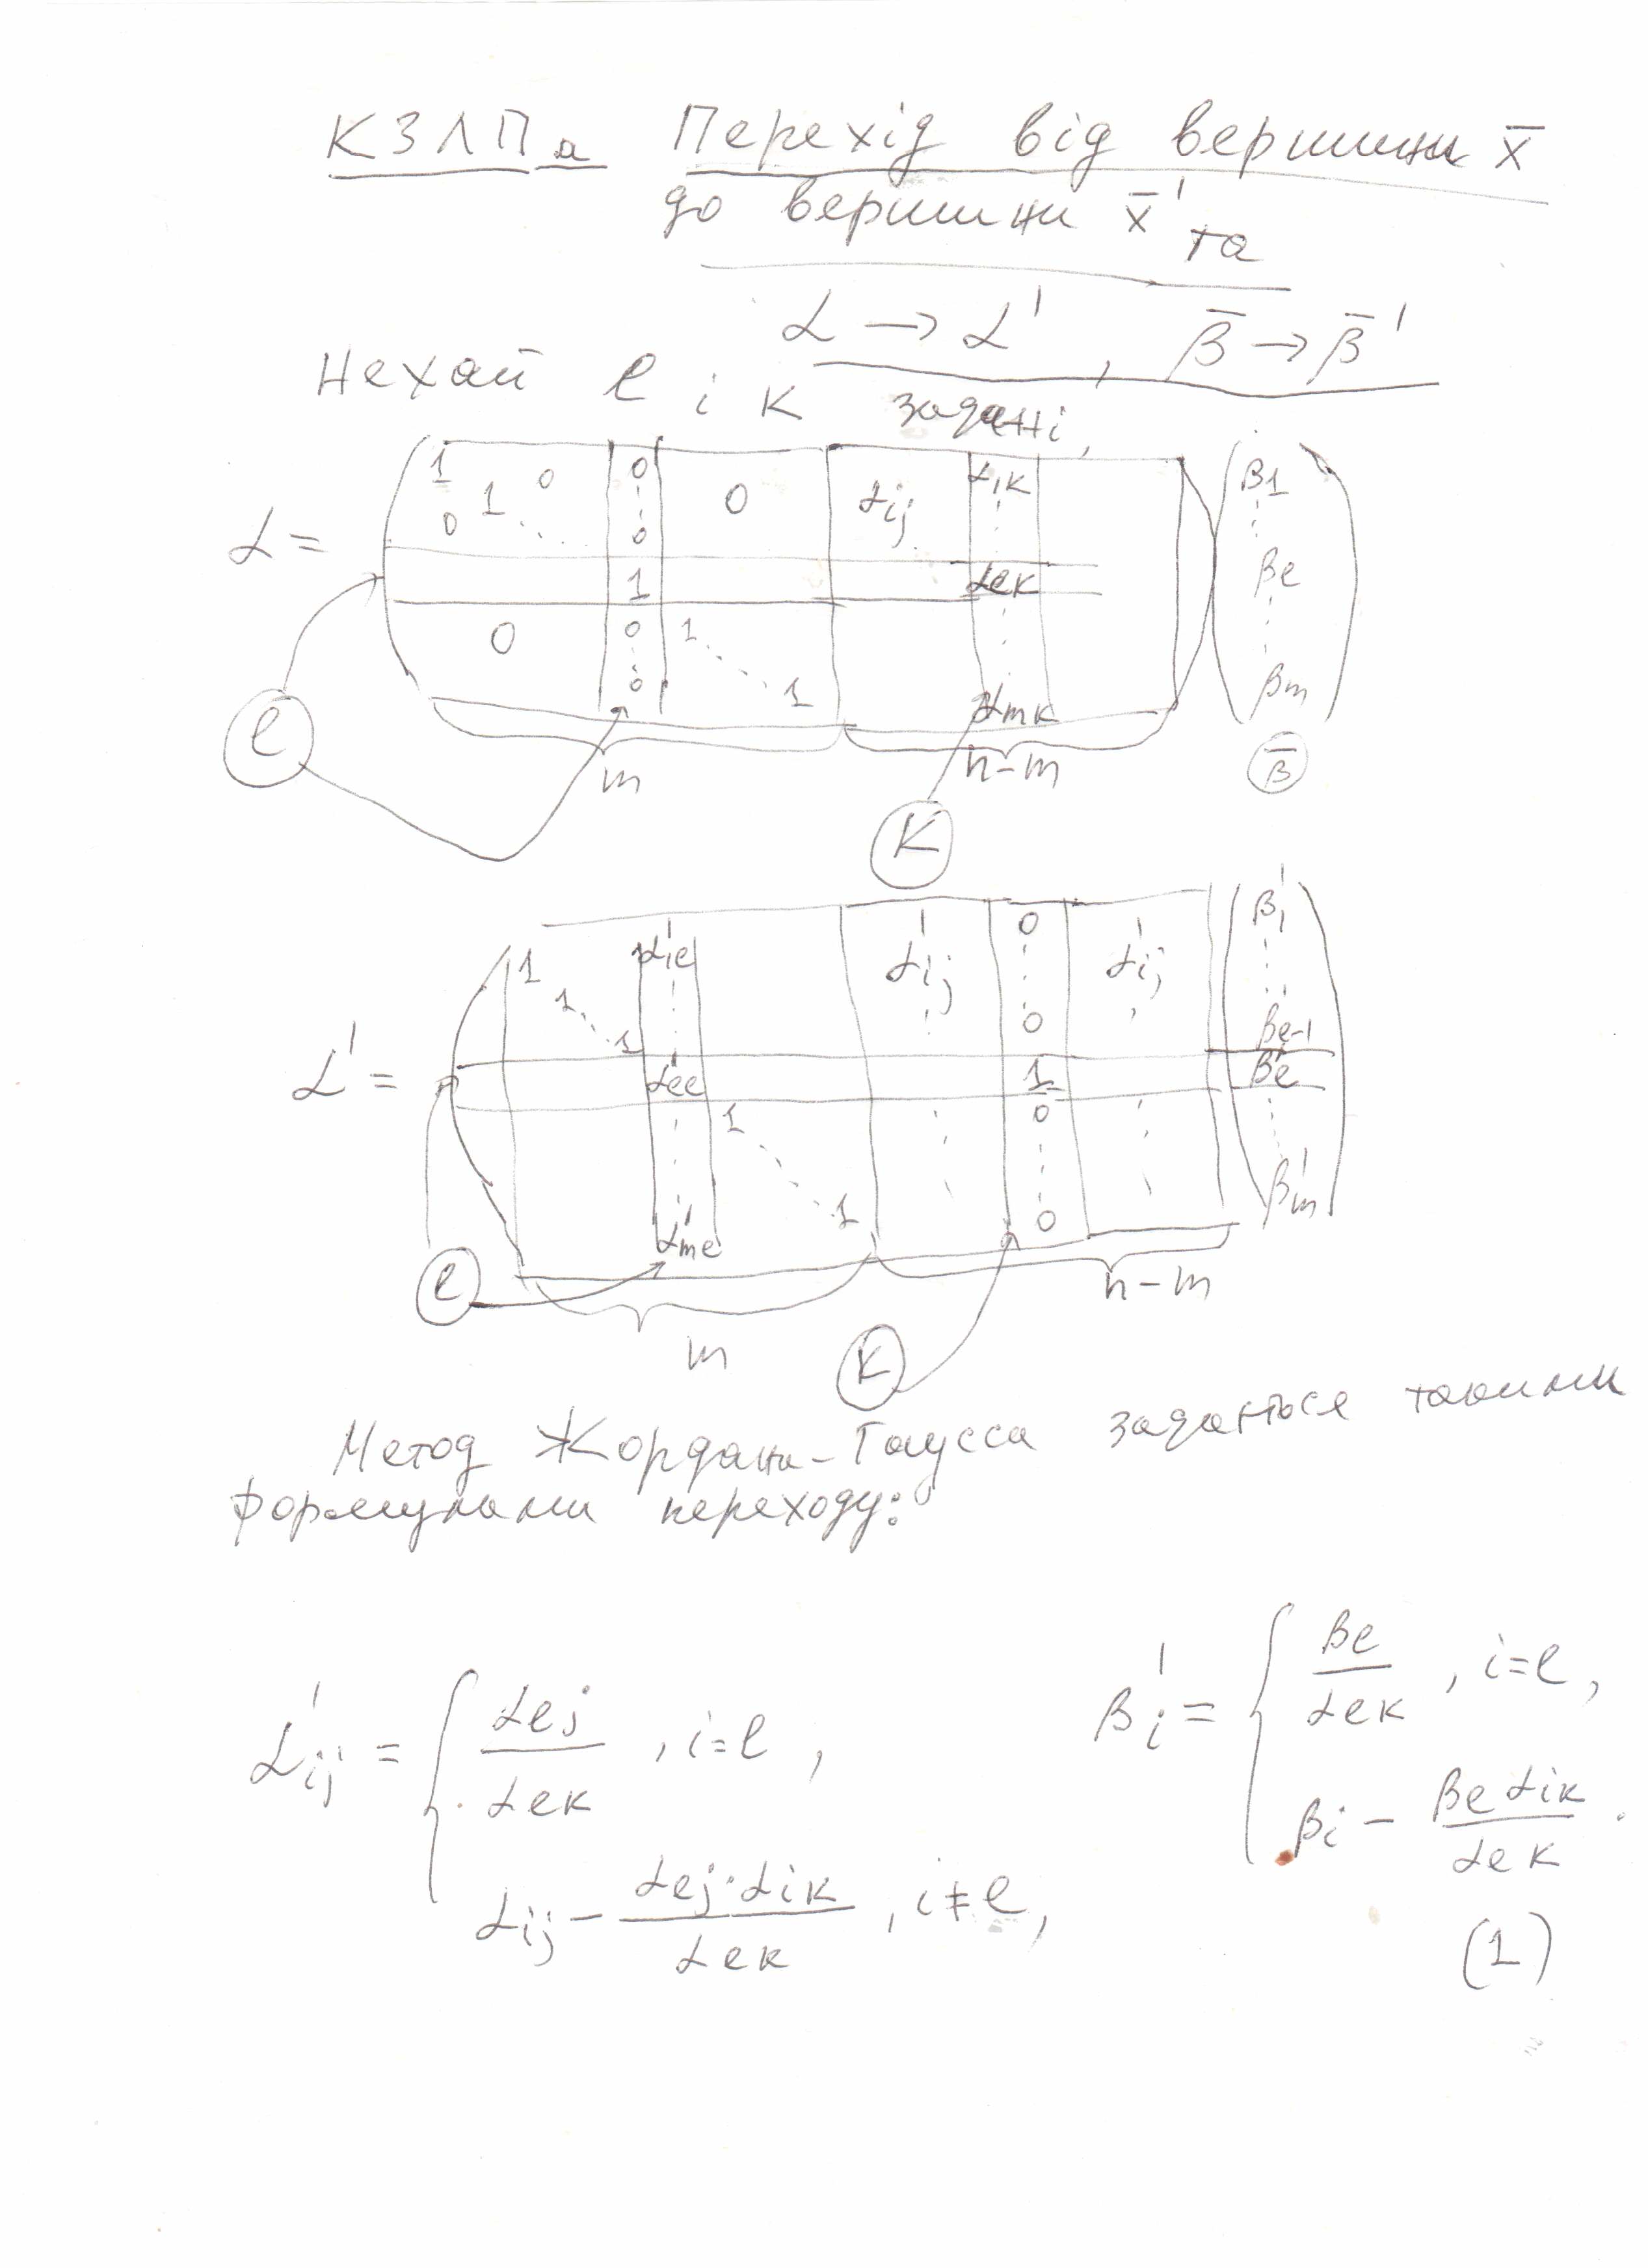 КЗЛПα Перехід від вершини x̄
до вершини x̄' та
α → α' , β̄ → β̄'
Нехай l і k задані,
α =
1 0 0 0 αij α1k β1
0 1 0
1 αlk βl
0 0 1
0 1 αmk βm
l m k n-m β̄
α' =
1 α'1l α'ij 0 α'ij β'1
1
1 0 β'l-1
α'll 1 β'l
1 0
1 0 β'm
α'ml
l m k n-m
Метод Жордана-Гаусса задається такими
формулами переходу:
α'ij = { αlj / αlk , i=l ,
αij - αlj·αik / αlk , i≠l,
β'i = { βl / αlk , i=l,
βi - βl αik / αlk .
(1)